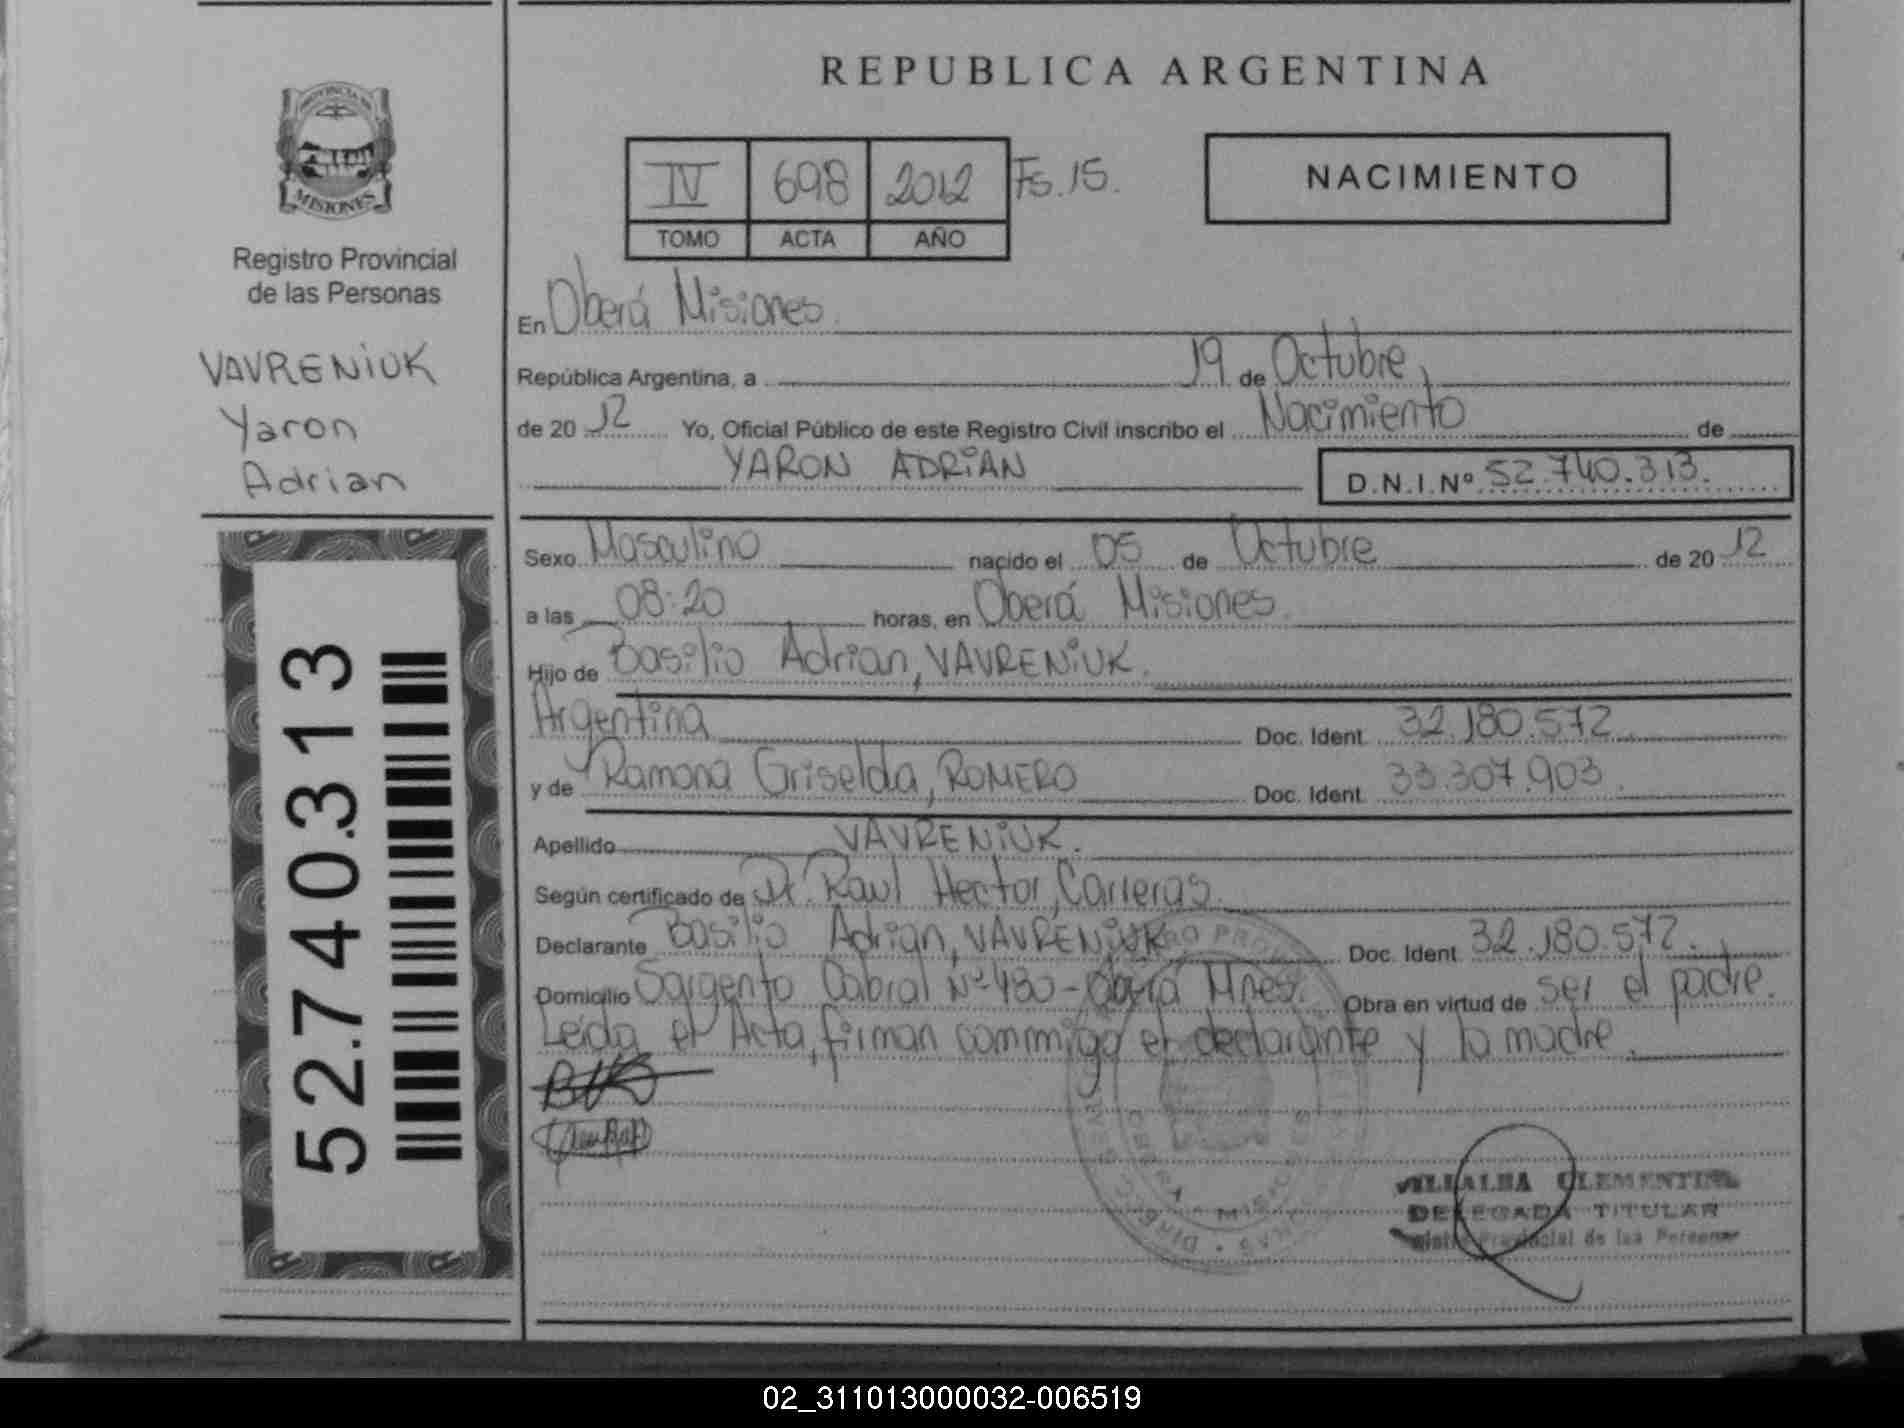 REPUBLICA ARGENTINA
PROVINCIA DE
MISIONES
Registro Provincial
de las Personas
IV 698 2012 Fs. 15.
TOMO ACTA AÑO
NACIMIENTO
VAVRENIUK
Yaron
Adrian
52.740.313
En Oberá Misiones.
República Argentina, a 19 de Octubre,
de 2012 Yo, Oficial Público de este Registro Civil inscribo el Nacimiento de
YARON ADRIAN D.N.I.Nº 52.740.313.
Sexo Masculino nacido el 05 de Octubre de 2012
a las 08:20 horas, en Oberá Misiones.
Hijo de Basilio Adrian, VAVRENIUK.
Argentina Doc. Ident. 32.180.572
y de Ramona Griselda, ROMERO Doc. Ident. 33.307.903
Apellido VAVRENIUK.
Según certificado de Dr. Raul Hector, Carreras.
Declarante Basilio Adrian, VAVRENIUK Doc. Ident. 32.180.572.
Domicilio Sargento Cabral Nº 480 - Oberá Mnes. Obra en virtud de ser el padre.
Leída el Acta, firman commigo el declarante y la madre.
VILLALBA CLEMENTINA
DELEGADA TITULAR
Provincial de las Personas
02_311013000032-006519